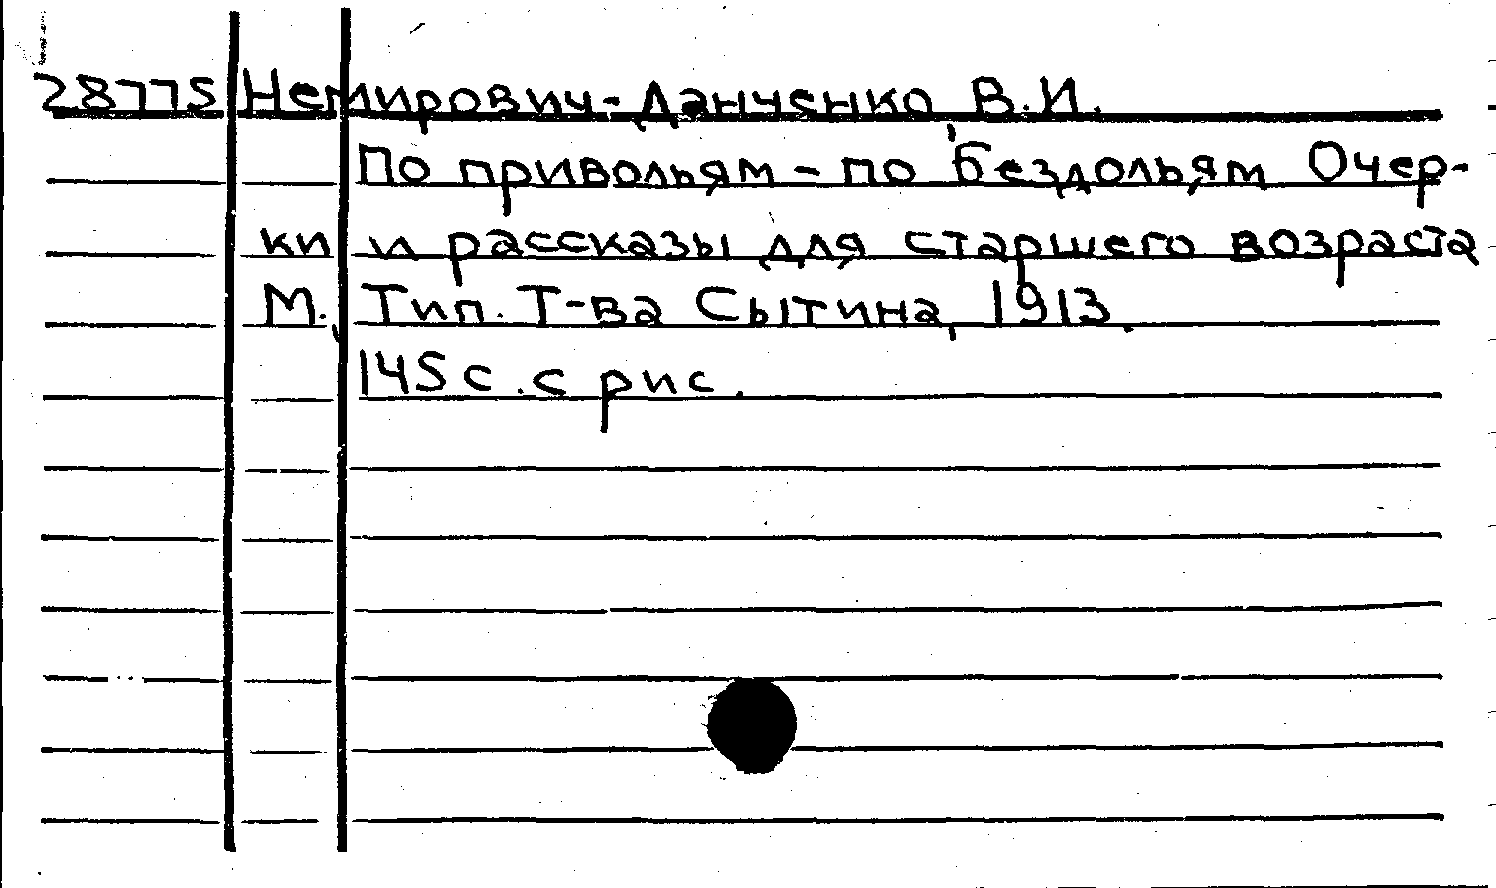 28775 Немирович-Данченко В.И.
По привольям - по бездольям Очер-
ки и рассказы для старшего возраста
М., Тип. Т-ва Сытина, 1913.
145 с. с рис.